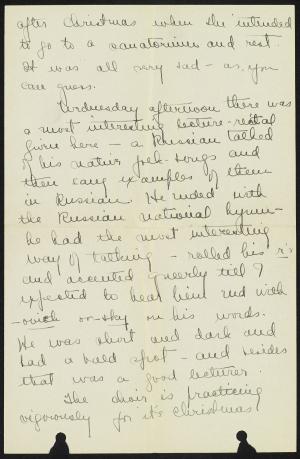 after Christmas when she intended
to go to a sanatorium and rest.
It was all very sad - as you
can guess.
Wednesday afternoon there was
a most interesting lecture-recital
given here - a Russian talked
of his native folk-songs and
then sang examples of them
in Russian. He ended with
the Russian national hymn -
he had the most interesting
way of talking - rolled his r's
and accented queerly till I
expected to hear him end with
-ovich or -sky on his words.
He was short and dark and
had a bald spot - and besides
that was a good lecturer.
The choir is practicing
vigorously for it's Christmas